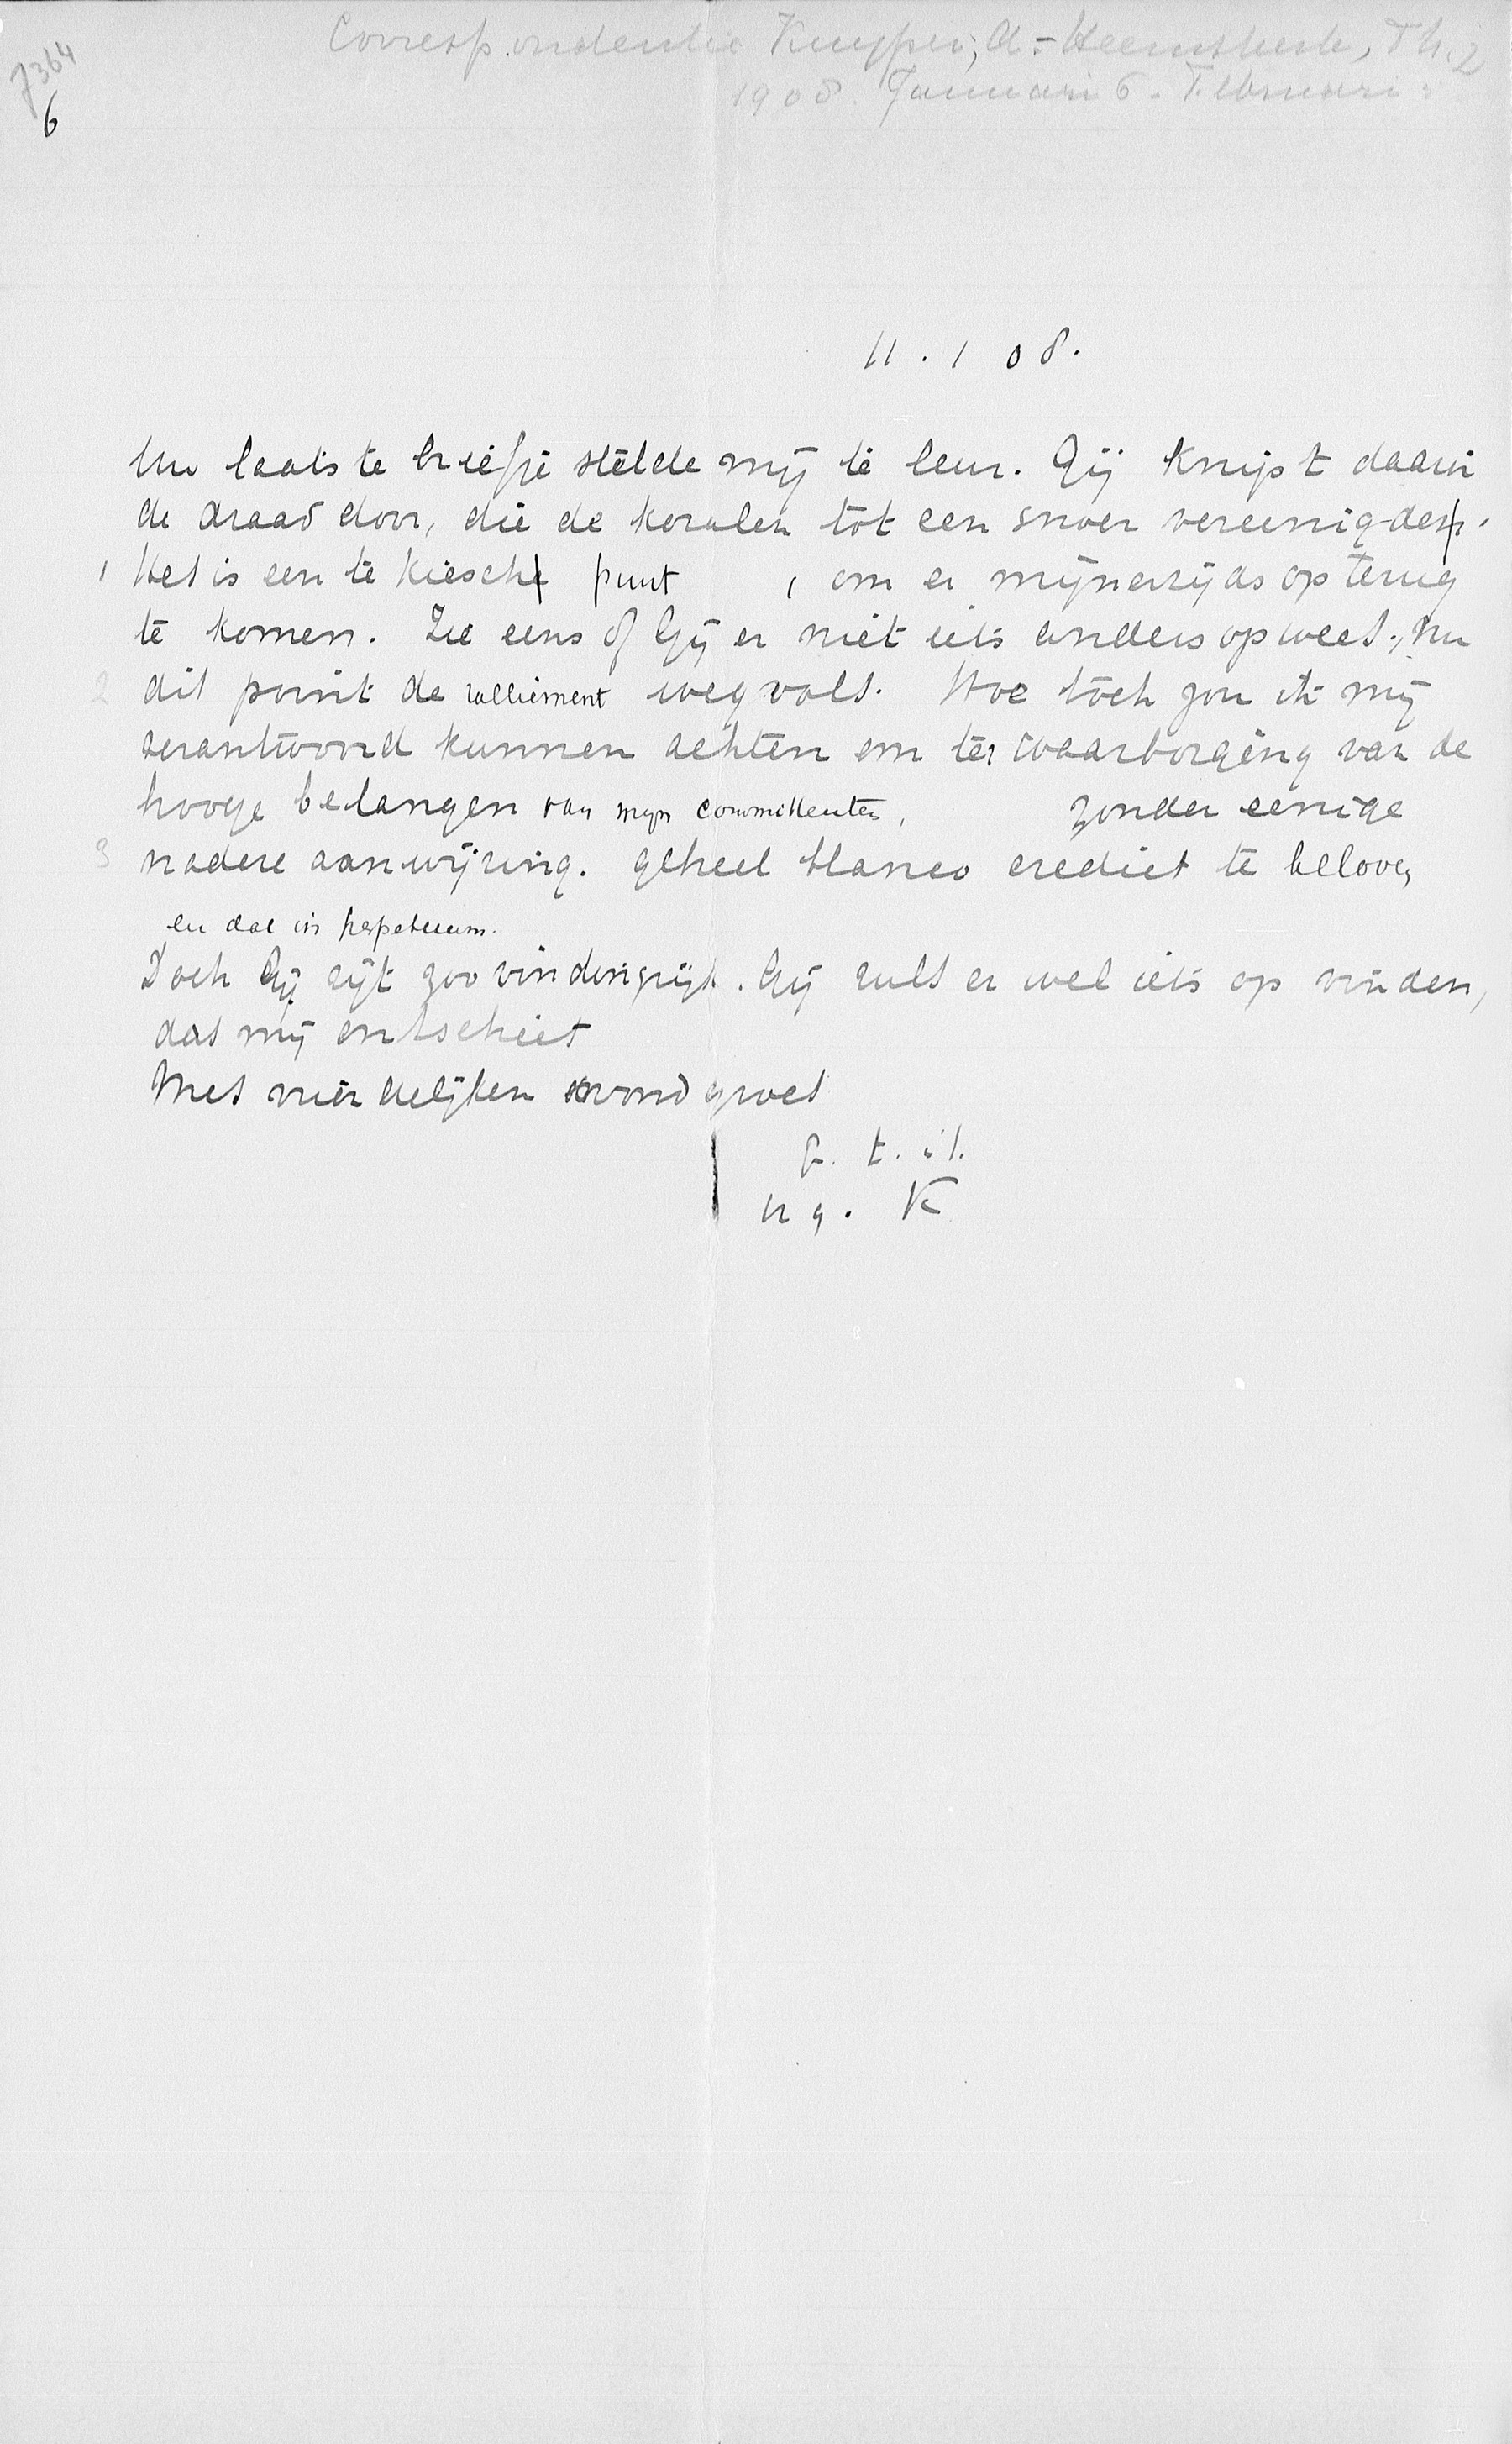 7364
6
Correspondentie Kuyper, A. - Heemskerk, Th. 2
1908. Januari 6 - Februari
11 . 1 08.
Uw laatste briefje stelde mij te leur. Gij knipt daarin
de draad door, die de koralen tot een snoer vereenigden.
1 Het is een te kiesch punt , om er mijnerzijds op terug
te komen. Zie eens of Gij er niet iets anders op weet, nu
2 dit point de ralliement wegvalt. Hoe toch zou ik mij
verantwoord kunnen achten om ter waarborging van de
hooge belangen van mijn committenten, zonder eenige
3 nadere aanwijzing. geheel blanco crediet te beloven
en dat in perpetuum.
Doch Gij zijt zoo vindingrijk. Gij zult er wel iets op vinden,
dat mij ontschiet
Met vriendelijken avondgroet
t. t.
w g. K